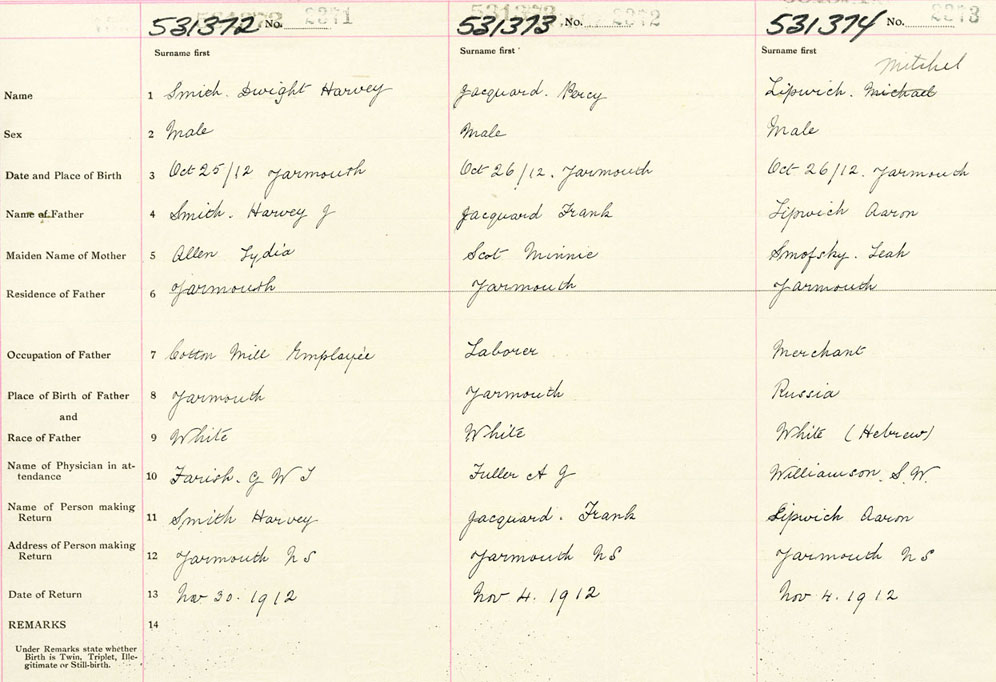 531372 No. 2271 531373 No. 2272 531374 No. 2273
Surname first Surname first Surname first
Mitchel
Name 1 Smith. Dwight Harvey Jacquard. Percy Lipwich. Michael
Sex 2 Male Male Male
Date and Place of Birth 3 Oct 25/12 Yarmouth Oct 26/12. Yarmouth Oct 26/12. Yarmouth
Name of Father 4 Smith. Harvey J Jacquard Frank Lipwich Aaron
Maiden Name of Mother 5 Allen Lydia Scot Minnie Smofsky. Leah
Residence of Father 6 Yarmouth Yarmouth Yarmouth
Occupation of Father 7 Cotton Mill Employeé Laborer Merchant
Place of Birth of Father 8 Yarmouth Yarmouth Russia
and
Race of Father 9 White White White (Hebrew)
Name of Physician in at-
tendance 10 Farish. G W T Fuller A J Williamson. S. W.
Name of Person making
Return 11 Smith Harvey Jacquard. Frank Lipwich Aaron
Address of Person making
Return 12 Yarmouth NS Yarmouth NS Yarmouth NS
Date of Return 13 Nov 30. 1912 Nov 4. 1912 Nov 4. 1912
REMARKS 14
Under Remarks state whether
Birth is Twin, Triplet, Ille-
gitimate or Still-birth.